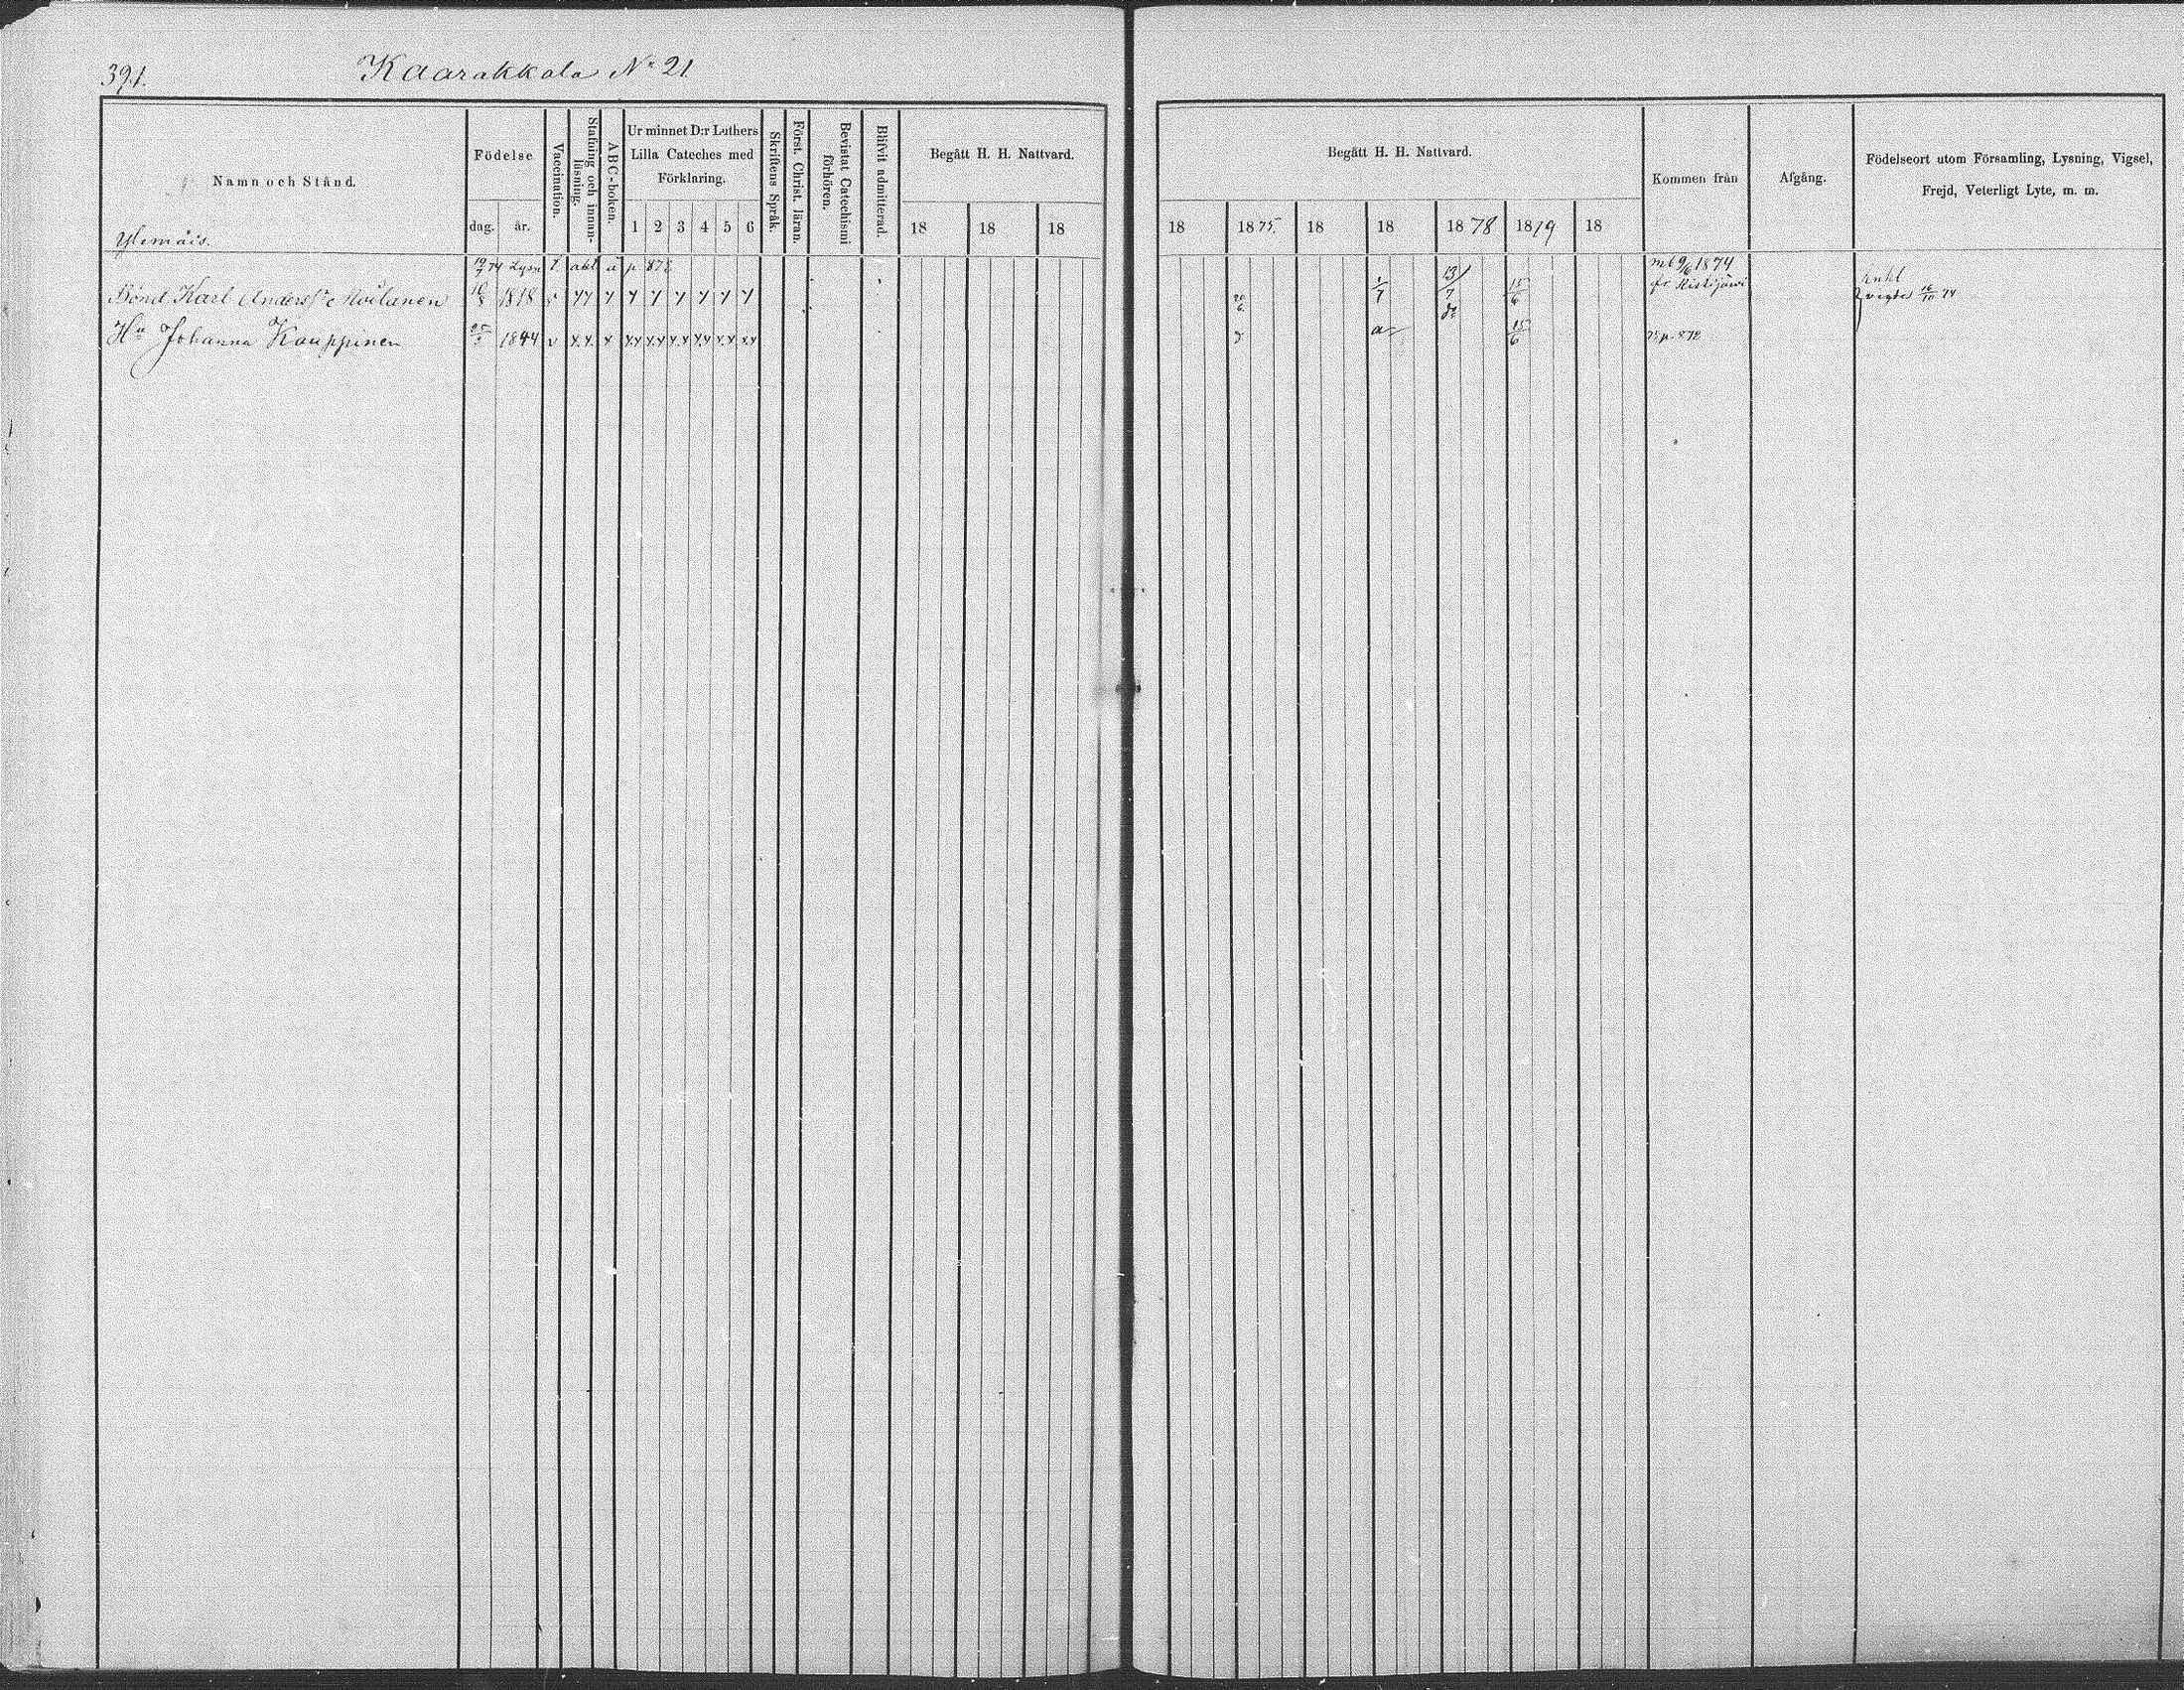 391.
Kaarakkala No 21
Namn och Stånd.
Födelse
dag. år.
Vaccination.
Stafning och innan-läsning.
ABC-boken.
Ur minnet D:r Luthers
Lilla Cateches med
Förklaring.
1 2 3 4 5 6
Skriftens Språk.
Först. Christ. läran.
Bevistat Catechismi förhören.
Blifvit admitterad.
Begått H. H. Nattvard.
18 18 18
Begått H. H. Nattvard.
18 1875. 18 18 1878 1879 18
Kommen från
Afgång.
Födelseort utom Församling, Lysning, Vigsel,
Frejd, Veterligt Lyte, m. m.
Ylemäis.
19/7 74 Lysn t. akt a p 872
mb 9/6 1874
Bond Karl Anders Sn Moilanen 10/8 1818 v yy y y y y y y y 20/6 1/7 13/7 15/6 fr Ristijärvi Enkl vigde 16/10 74
Hu Johanna Kauppinen 1844 v x.x. x x.x x.x x.x x.x x.x x.x 15/6 p. 872